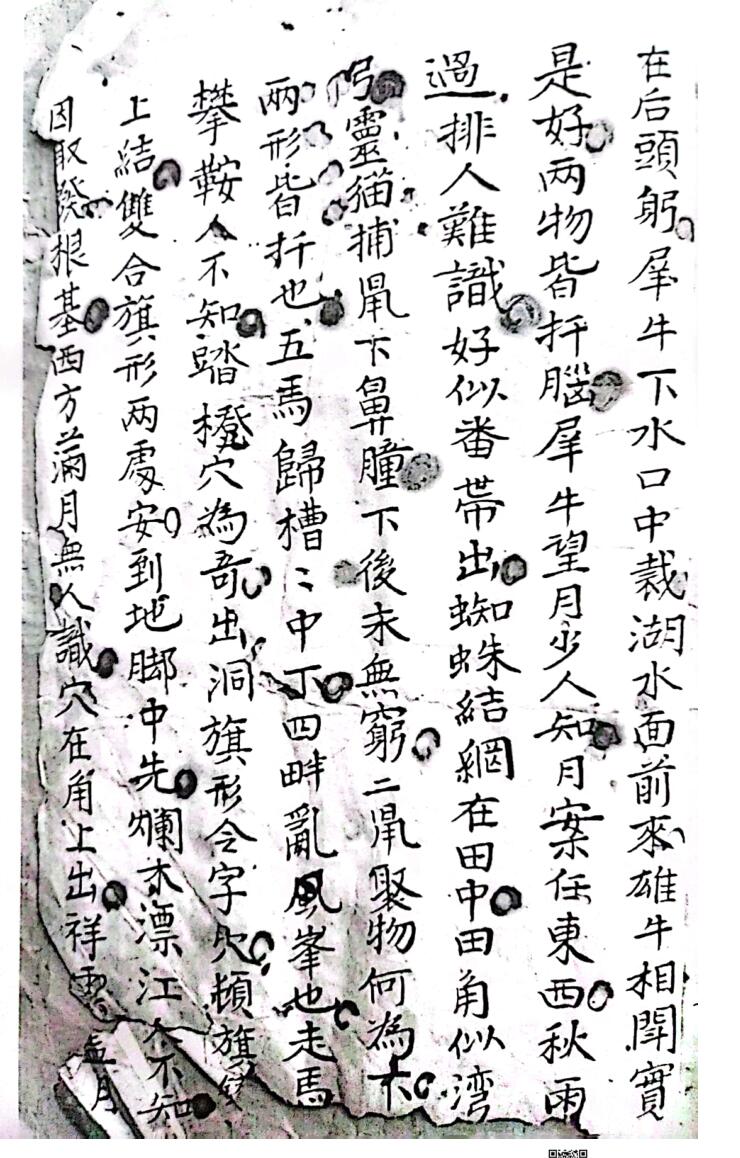 在后頭躬犀牛下水口中裁湖水面前來雄牛相閗實
是好两物皆扦腦犀牛望月少人知月案任東西秋雨
過排人難識好似番帶出蜘蛛結網在田中田角似湾
弓靈猫捕鼡下鼻瞳下後未無窮二鼡聚物何為木
两形皆扦也五馬歸槽〻中丁四畔亂風峯也走馬
攀鞍人不知踏橙穴為奇出洞旗形令字穴頓旗雙
上結雙合旗形两處安到地脚中先爛木漂江人不知
因取發根基西方滿月無人識穴在角上出祥雲孟月